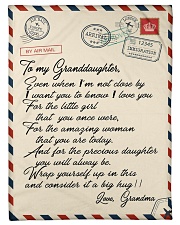 BY AIR MAIL
ARRIVED
12345
IMMIGRATION
To my Granddaughter,
Even when I'm not close by
I want you to know I love you
For the little girl
that you once were,
For the amazing woman
that you are today.
And for the precious daughter
you will alway be.
Wrap yourself up in this
and consider it a big hug!!
Love, Grandma